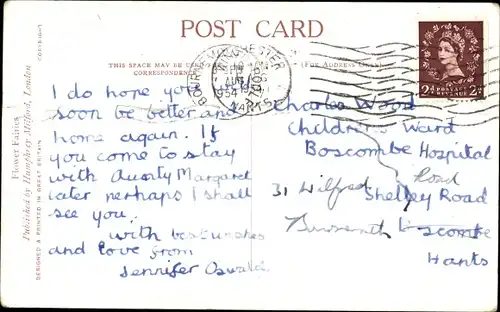 POST CARD
THIS SPACE MAY BE USED
CORRESPONDENCE
(FOR ADDRESS ONLY)
COPYRIGHT
Flower Fairies
Published by Humphrey Milford, London
DESIGNED & PRINTED IN GREAT BRITAIN
1954
POSTAGE
2D 2D
I do hope you
soon be better and
home again. If
you come to stay
with Aunty Margaret
later perhaps I shall
see you.
with best wishes
and love from
Jennifer Oswald
Charles Wood
Children's Ward
Boscombe Hospital
Shelley Road
31 Wilfred Road
Boscombe
Hants